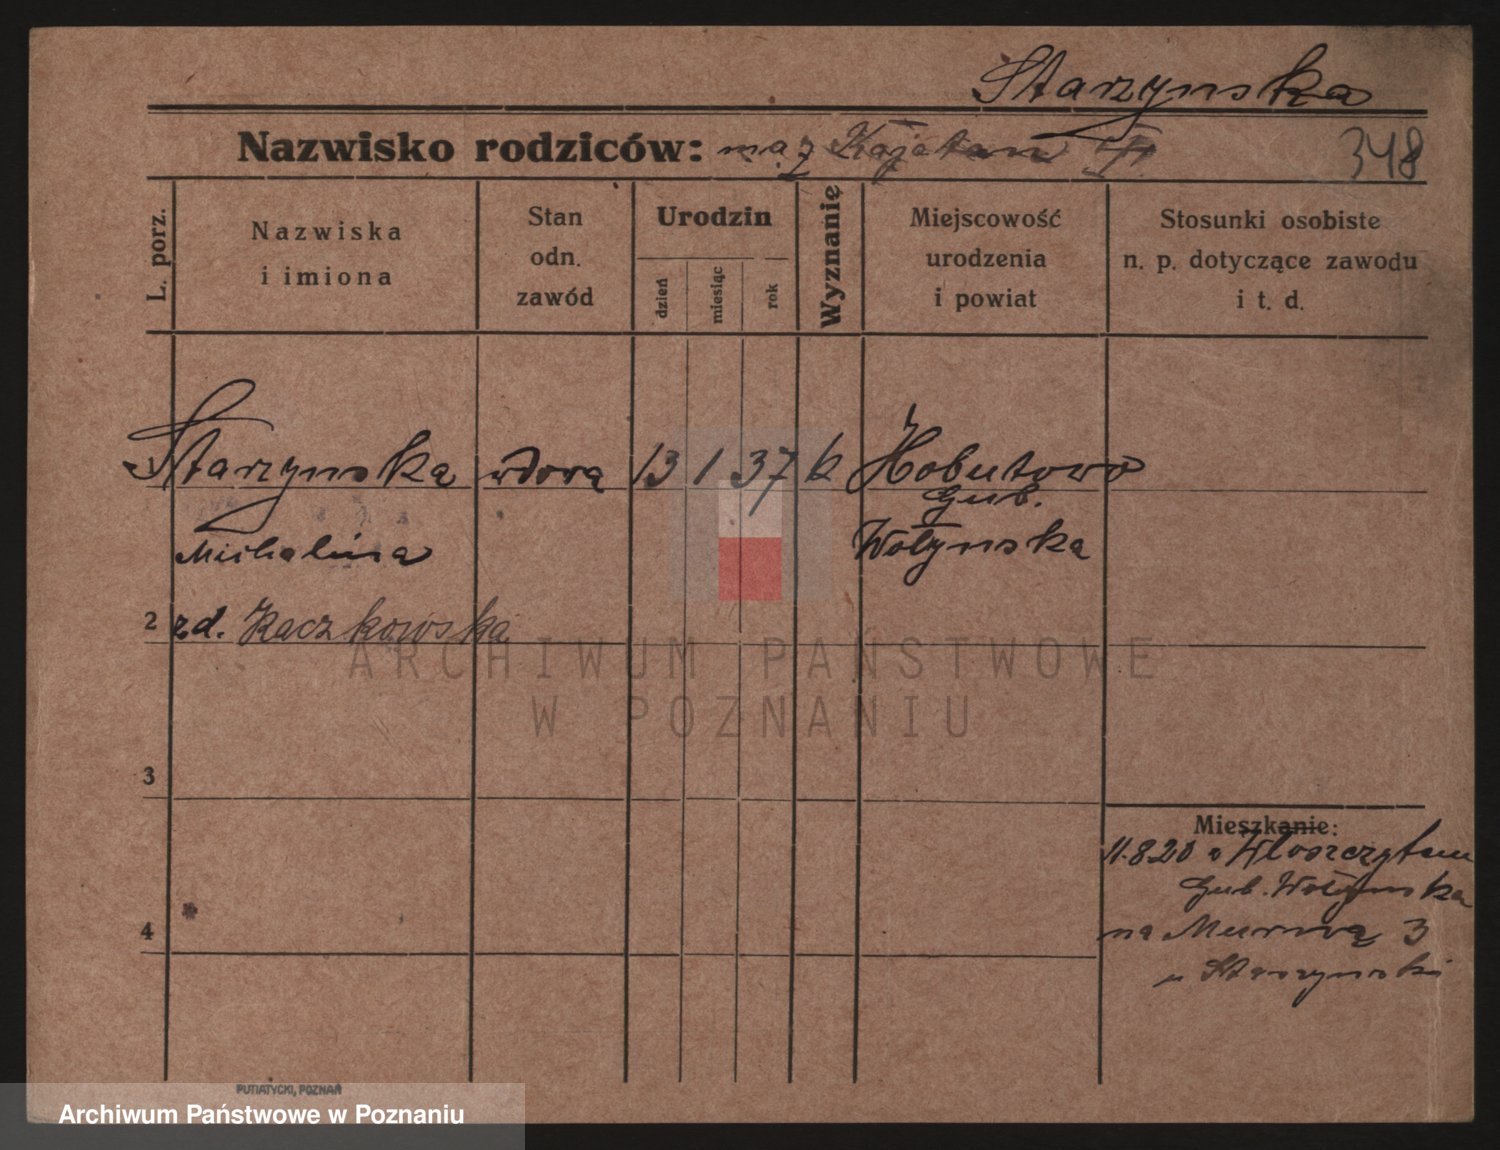 Starzynska
Nazwisko rodziców: mąż Kajetan
348
L. porz.
Nazwiska
i imiona
Stan
odn.
zawód
Urodzin
dzień
miesiąc
rok
Wyznanie
Miejscowość
urodzenia
i powiat
Stosunki osobiste
n. p. dotyczące zawodu
i t. d.
1 Starzynska wdowa 13 1 37 k Hobutowo
Gub.
Michalina Wołynska
2 zd. Raczkowska
ARCHIWUM PAŃSTWOWE
W POZNANIU
3
Mieszkanie:
11.8.20
Gub. Wołynska
4
na Murną 3
u Starzynski
PUTIATYCKI, POZNAŃ
Archiwum Państwowe w Poznaniu